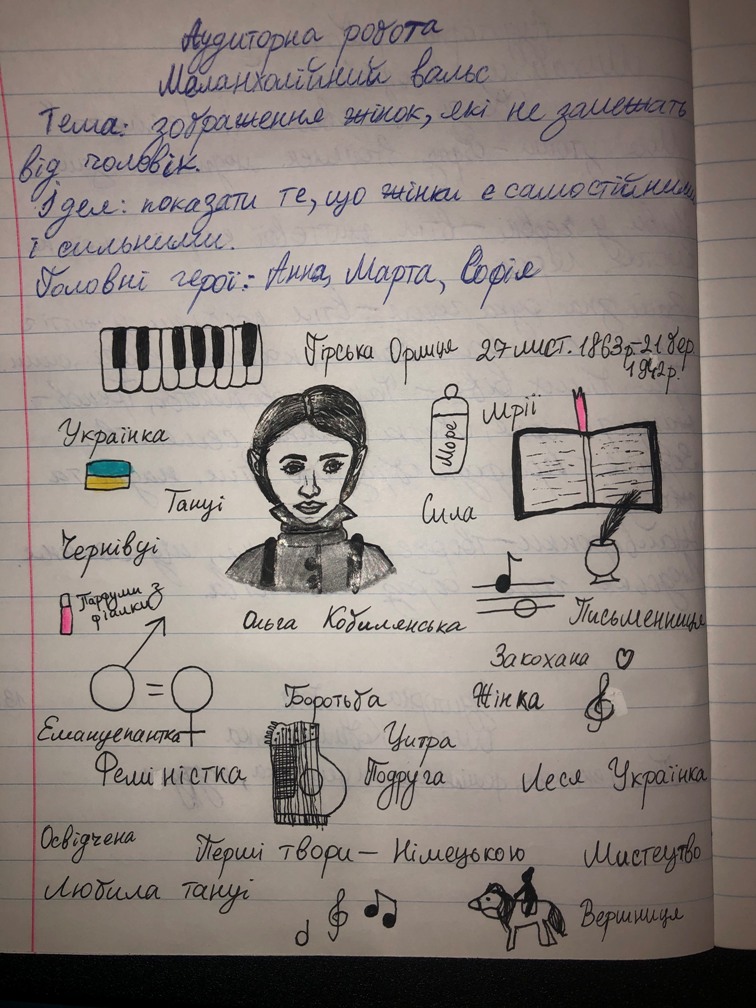 Аудиторна робота
Меланхолійний вальс
Тема: зображення жінок, які не залежать
від чоловік.
Ідея: показати те, що жінки є самостійними
і сильними.
Головні герої: Анна, Марта, Софія
Гірська Орлиця 27 лист. 1863р-21 бер.
1942р.
Українка
Море
Мрії
Танці
Сила
Чернівці
Парфуми з
фіалки
Ольга Кобилянська
Письменниця
Закохана
=
Жінка
Боротьба
Еманцепантка
Цитра
Феміністка
Подруга
Леся Українка
Освідчена
Перші твори — Німецькою
Мистецтво
Любила танці
Вершниця